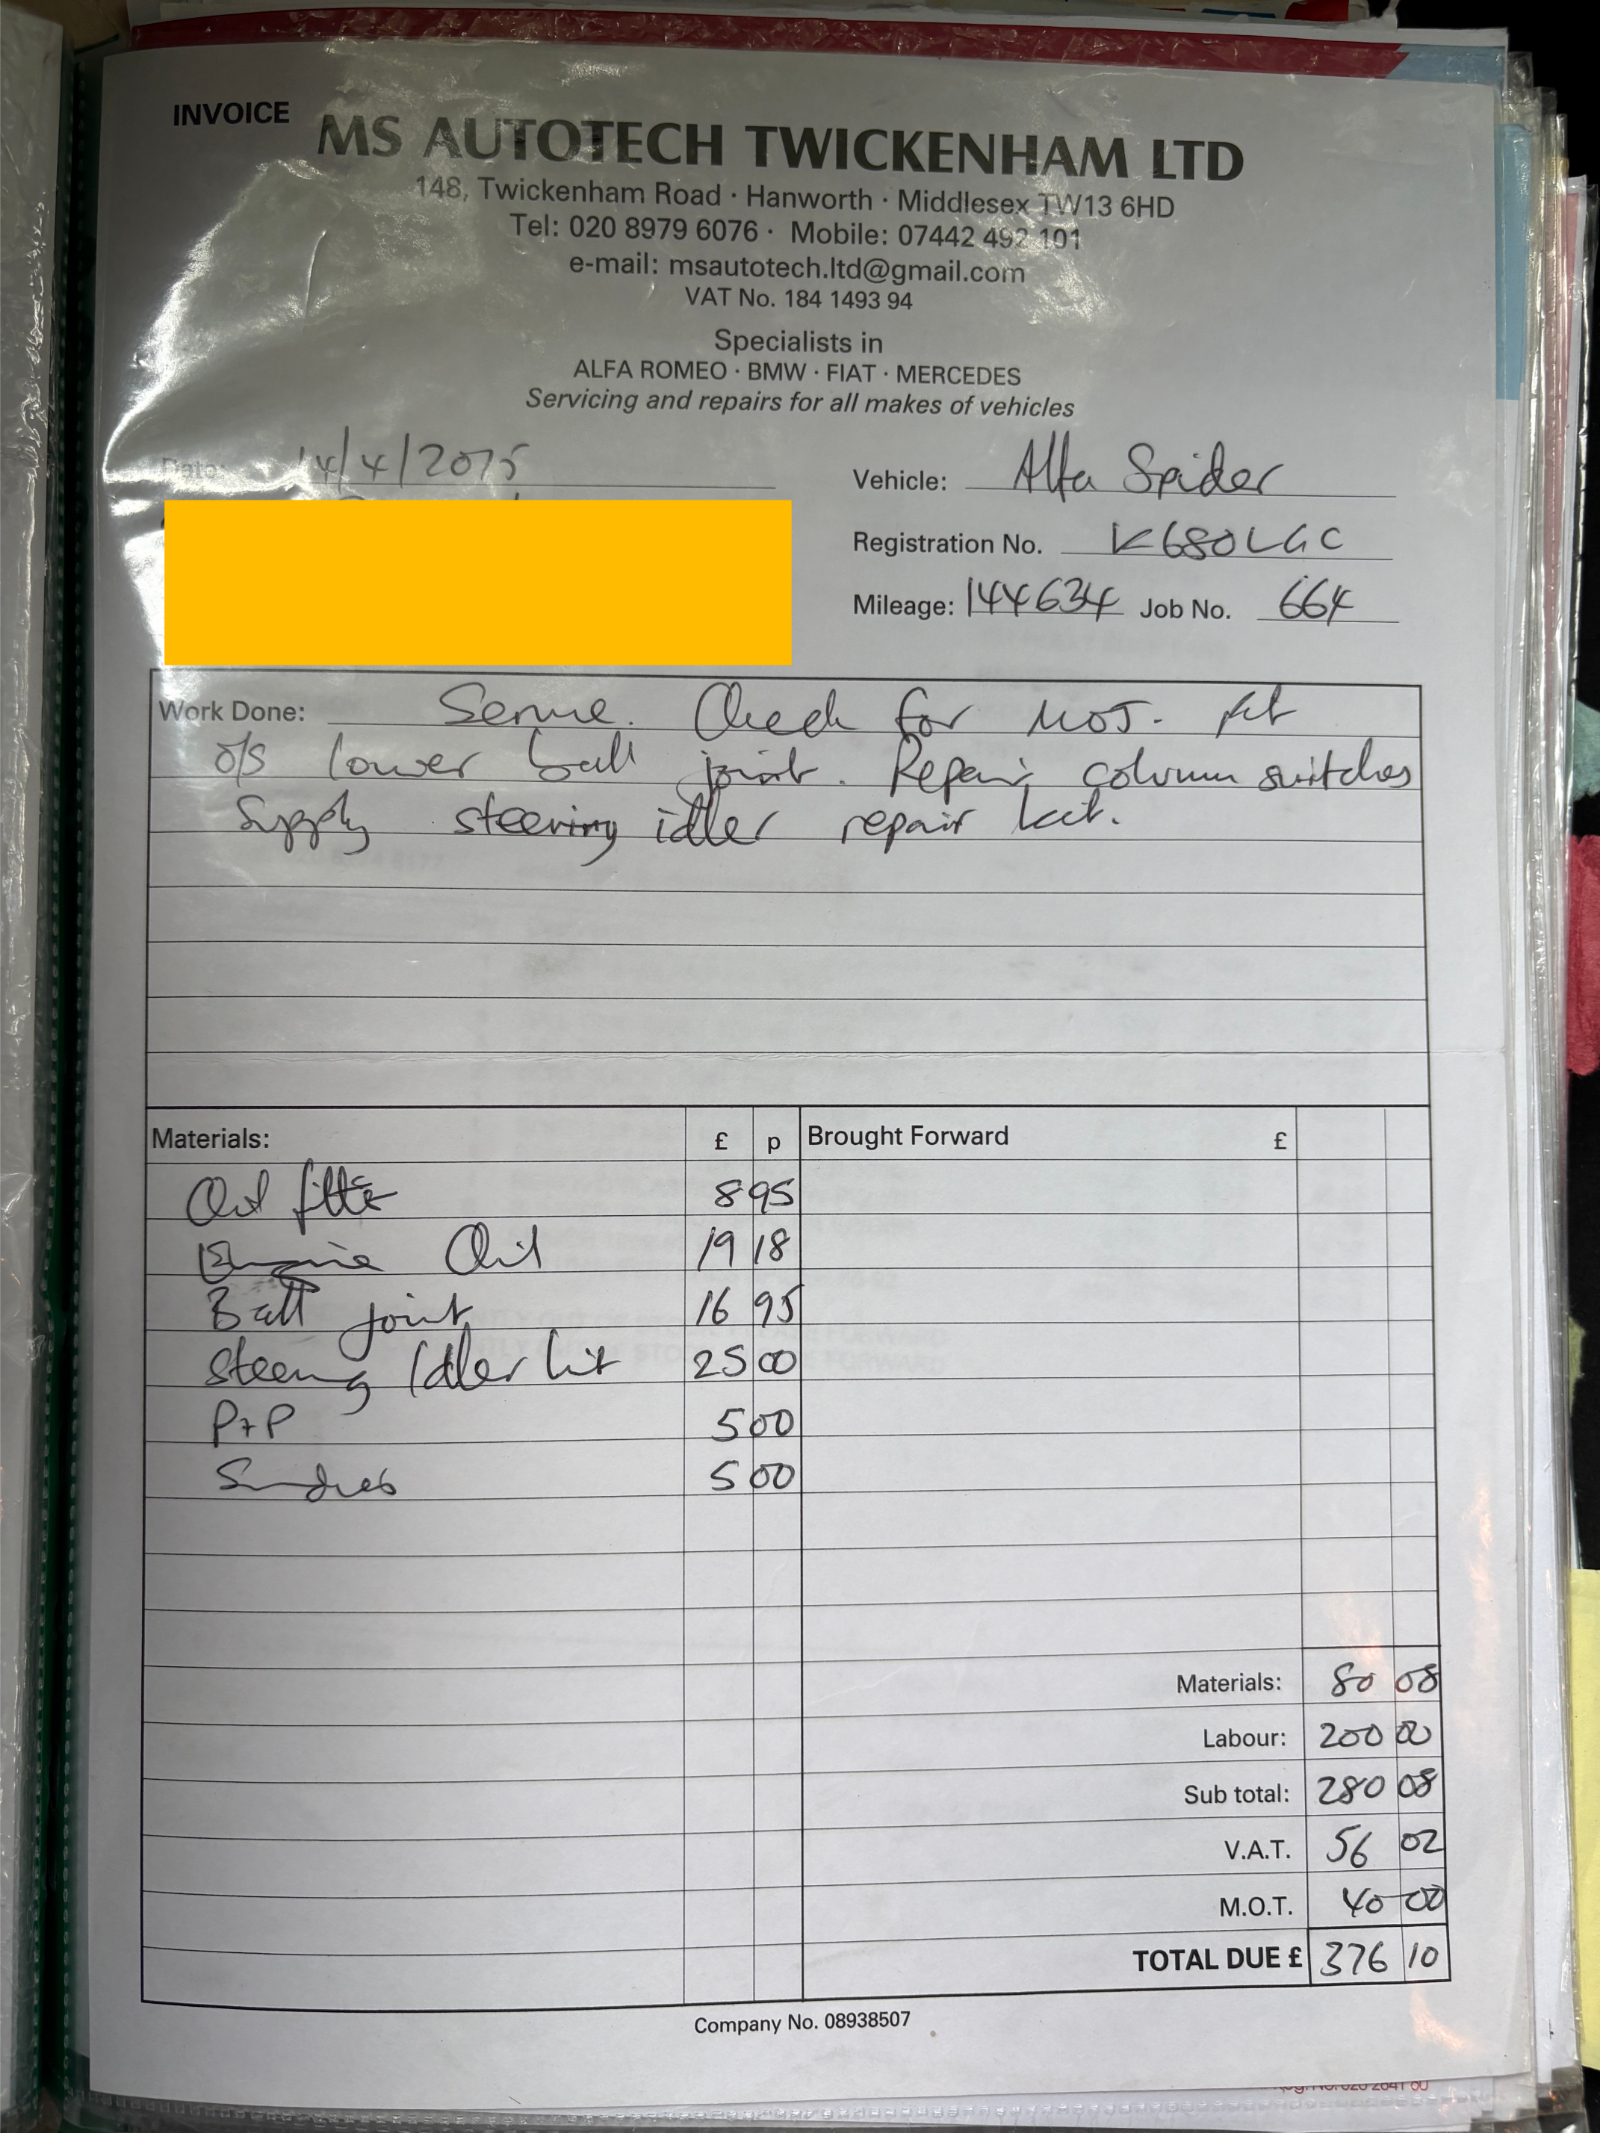 INVOICE
MS AUTOTECH TWICKENHAM LTD
148, Twickenham Road · Hanworth · Middlesex TW13 6HD
Tel: 020 8979 6076 · Mobile: 07442 492 101
e-mail: msautotech.ltd@gmail.com
VAT No. 184 1493 94
Specialists in
ALFA ROMEO · BMW · FIAT · MERCEDES
Servicing and repairs for all makes of vehicles
Date: 14/4/2015
Vehicle: Alfa Spider
Registration No. K680LGC
Mileage: 144634 Job No. 664
Work Done: Service. Check for MOT. Fit
o/s lower ball joint. Repair column switches
Supply steering idler repair kit.
Materials: £ p Brought Forward £
Oil filter 8 95
Engine Oil 19 18
Ball joint 16 95
Steering Idler kit 25 00
P+P 5 00
Sundries 5 00
Materials: 80 08
Labour: 200 00
Sub total: 280 08
V.A.T. 56 02
M.O.T. 40 00
TOTAL DUE £ 376 10
Company No. 08938507